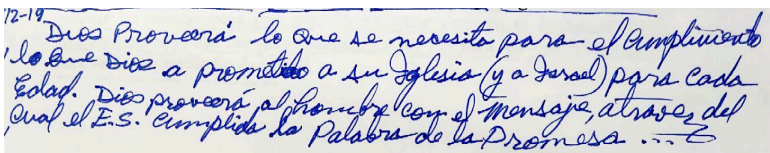 12-19
Dios Proveerá lo que se necesita para el Cumplimiento
lo que Dios a prometido a su Iglesia (y a Israel) para cada
Edad. Dios proveerá al hombre con el Mensaje, atravez del
Cual el E.S. Cumplida la Palabra de la Promesa ...